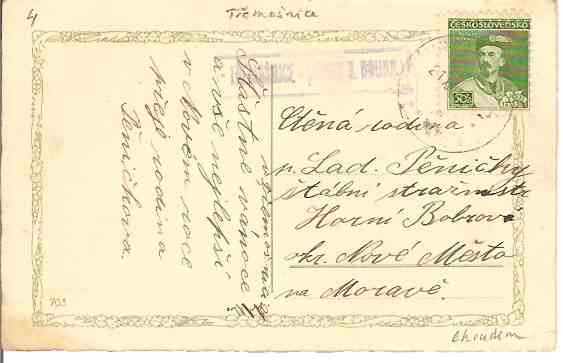 4
Třemošnice
ČESKOSLOVENSKO
50h
Šťastné vánoce
a vše nejlepší
v Novém roce
přeje rodina
Pěničkova.
Ctěná rodina
p. Lad. Pěničky
štábní strážmistr
Horní Bobrová
okr. Nové Město
na Moravě.
703
Chrudim